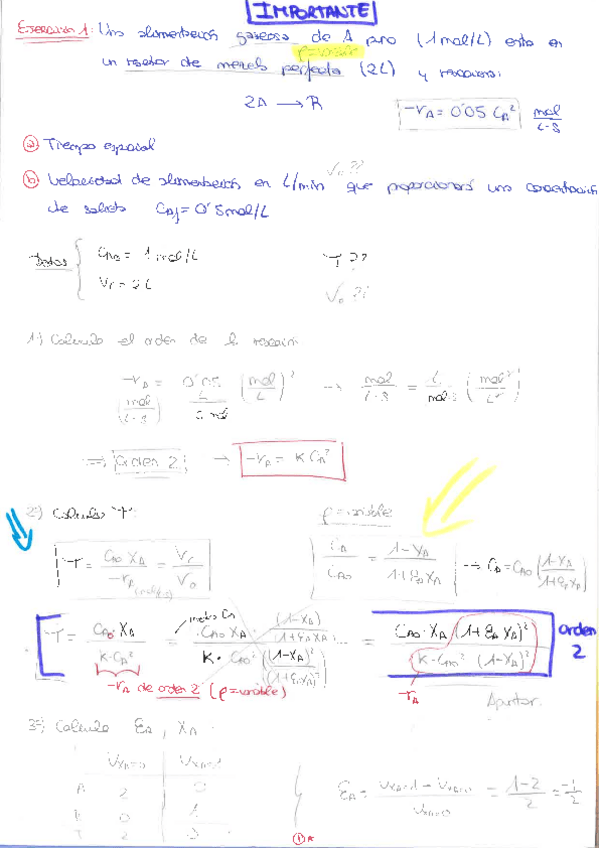 IMPORTANTE
Ejercicio 1: Una alimentación gaseosa de A puro (1 mol/L) entra en
ρ=variable
un reactor de mezcla perfecta (2L) y reacciona:
2A → R
-rA = 0'05 CA² mol/L·s
a) Tiempo espacial
V₀??
b) Velocidad de alimentación en L/min que proporcionará una concentración
de salida CAf = 0'5 mol/L
Datos { CA0 = 1 mol/L
Vr = 2L
T??
V₀??
1º) Calculo el orden de la reacción
-rA (mol/L·s) = 0'05 L/s·mol (mol/L)² → mol/L·s = L/mol·s (mol²/L²)
⇒ Orden 2 → -rA = K CA²
2º) Calculas "T":
ρ=variable
T = CA0 XA / -rA = Vr/V₀
CA/CA0 = 1-XA / 1+εA XA → CA = CA0 (1-XA / 1+εA XA)
T = CA0 XA / K·CA² = CA0 XA / K·CA0² ((1-XA)² / (1+εA XA)²) = CA0·XA (1+εA XA)² / K·CA0² (1-XA)²
meto CA
(1-XA)
1+εA XA ...
orden
2
-rA de orden 2 (ρ=variable)
-rA
Apuntar.
3º) Calculo εA, XA
VXA=0 VXA=1
A 2 0
R 0 1
T 2
εA = VXA=1 - VXA=0 / VXA=0 = 1-2 / 2 = -1/2